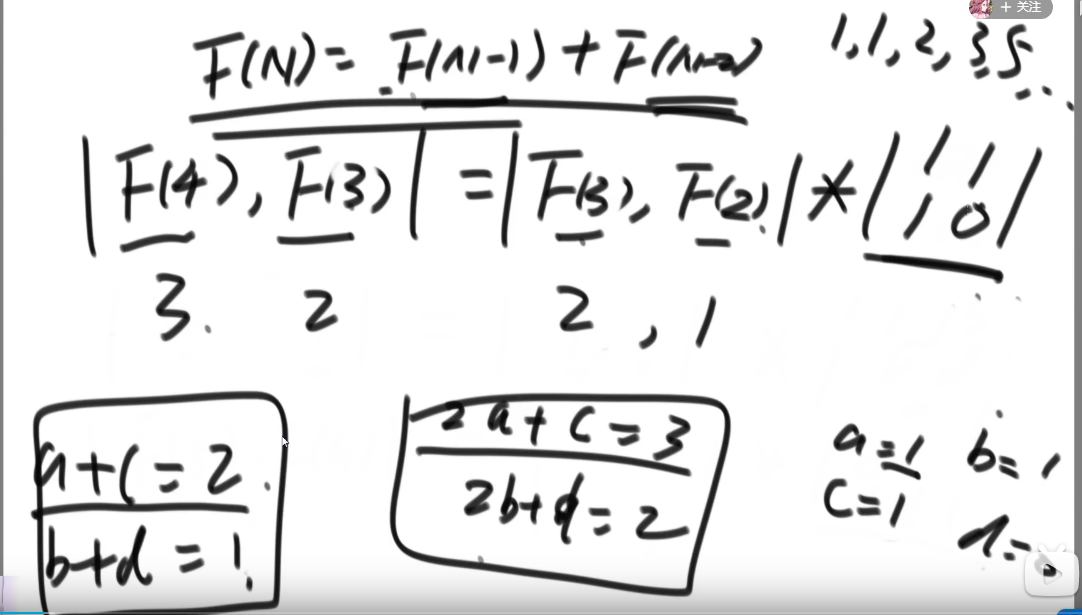 + 关注
F(N) = F(n-1) + F(n-2)
1, 1, 2, 3, 5 ...
| F(4), F(3) | = | F(3), F(2) | * | 1 1
1 0 |
3. 2 2, 1
a + c = 2
b + d = 1
2a + c = 3
2b + d = 2
a = 1 b = 1
c = 1
d =